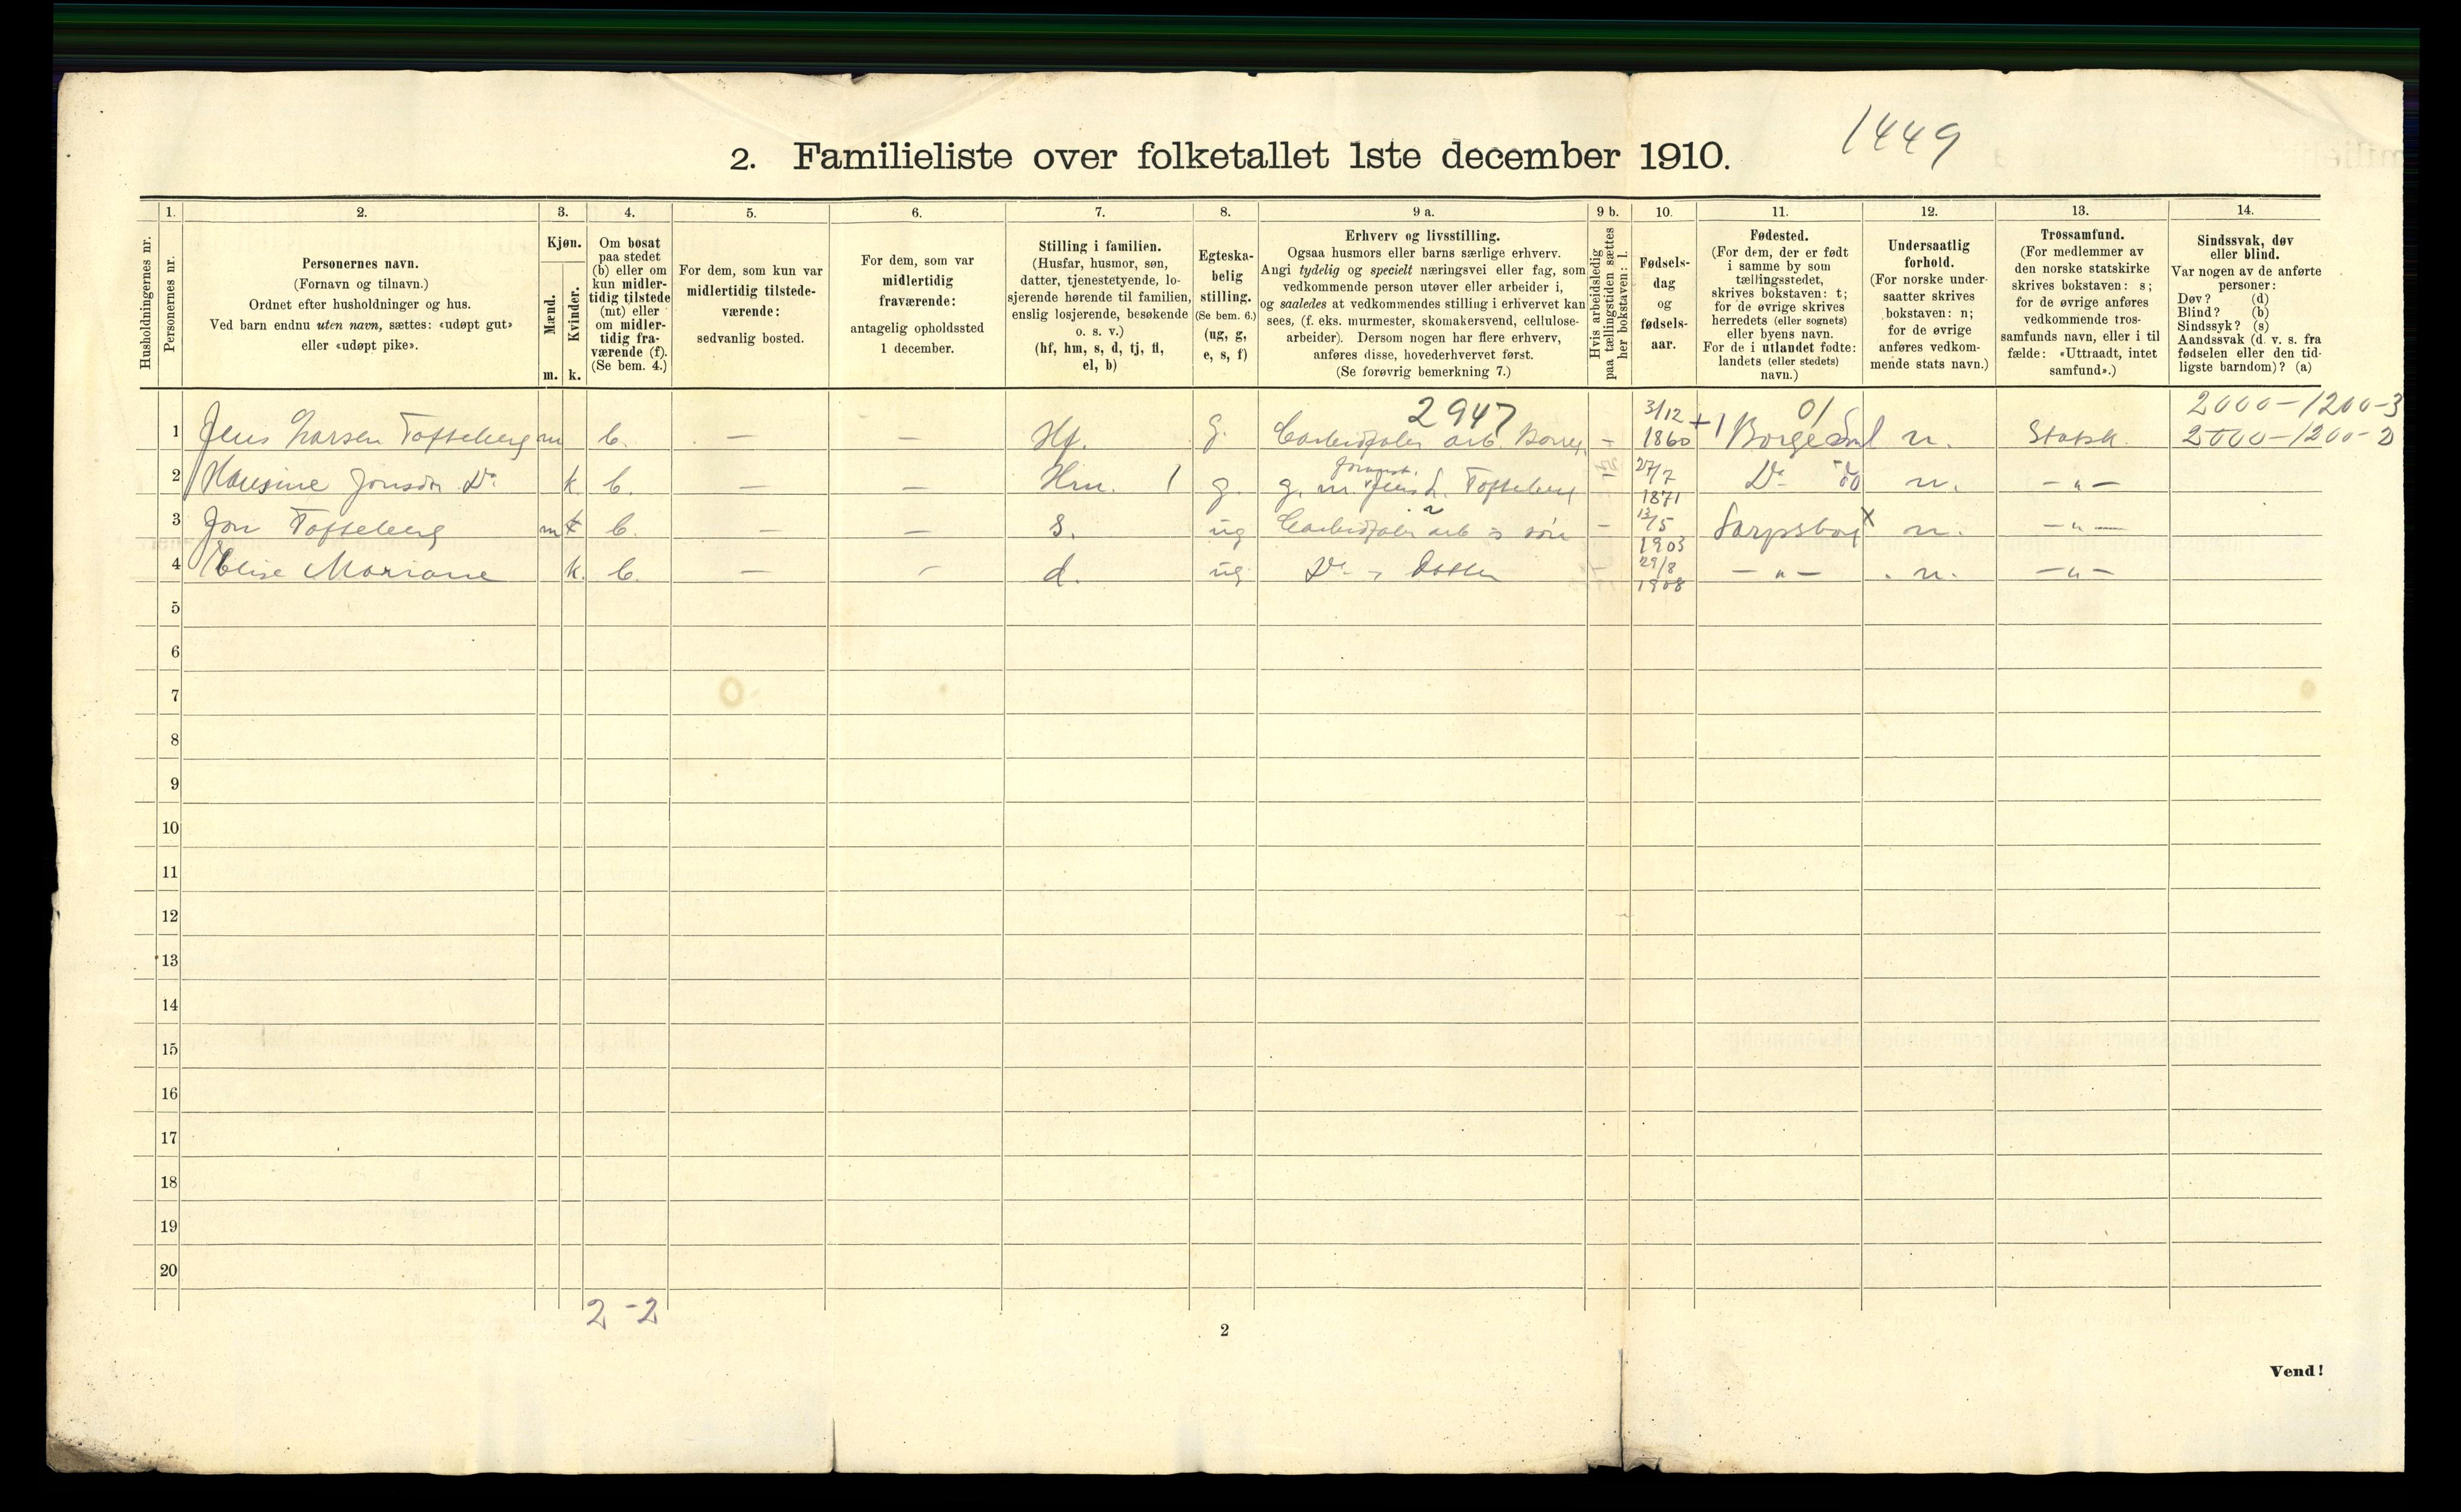 1449
2. Familieliste over folketallet 1ste december 1910.
Husholdningernes nr.
1.
Personernes nr.
2.
Personernes navn.
(Fornavn og tilnavn.)
Ordnet efter husholdninger og hus.
Ved barn endnu uten navn, sættes: «udøpt gut»
eller «udøpt pike».
3.
Kjøn.
Mænd.
Kvinder.
m. k.
4.
Om bosat
paa stedet
(b) eller om
kun midler-
tidig tilstede
(mt) eller
om midler-
tidig fra-
værende (f).
(Se bem. 4.)
5.
For dem, som kun var
midlertidig tilstede-
værende:
sedvanlig bosted.
6.
For dem, som var
midlertidig
fraværende:
antagelig opholdssted
1 december.
7.
Stilling i familien.
(Husfar, husmor, søn,
datter, tjenestetyende, lo-
sjerende hørende til familien,
enslig losjerende, besøkende
o. s. v.)
(hf, hm, s, d, tj, fl,
el, b)
8.
Egteska-
belig
stilling.
(Se bem. 6.)
(ug, g,
e, s, f)
9 a.
Erhverv og livsstilling.
Ogsaa husmors eller barns særlige erhverv.
Angi tydelig og specielt næringsvei eller fag, som
vedkommende person utøver eller arbeider i,
og saaledes at vedkommendes stilling i erhvervet kan
sees, (f. eks. murmester, skomakersvend, cellulose-
arbeider). Dersom nogen har flere erhverv,
anføres disse, hovederhvervet først.
(Se forøvrig bemerkning 7.)
9 b.
Hvis arbeidsledig
paa tællingstiden sættes
her bokstaven: l.
10.
Fødsels-
dag
og
fødsels-
aar.
11.
Fødested.
(For dem, der er født
i samme by som
tællingsstedet,
skrives bokstaven: t;
for de øvrige skrives
herredets (eller sognets)
eller byens navn.
For de i utlandet fødte:
landets (eller stedets)
navn.)
12.
Undersaatlig
forhold.
(For norske under-
saatter skrives
bokstaven: n;
for de øvrige
anføres vedkom-
mende stats navn.)
13.
Trossamfund.
(For medlemmer av
den norske statskirke
skrives bokstaven: s;
for de øvrige anføres
vedkommende tros-
samfunds navn, eller i til
fælde: «Uttraadt, intet
samfund».)
14.
Sindssvak, døv
eller blind.
Var nogen av de anførte
personer:
Døv? (d)
Blind? (b)
Sindssyk? (s)
Aandssvak (d. v. s. fra
fødselen eller den tid-
ligste barndom)? (a)
2947 3/12 01 2000-1200-3
1 Jens Larsen Tofteberg m b. — — Hf. g. arb. – 1860 +1 Borge n. Statsk. 2000-1200-2
2 Hansine Jonsdr. Do k. b. — — Hm. 1 g. g. m. Jens L. Tofteberg 27/7 1871 Do do n. —„—
3 Jon Tofteberg m b. — — s. ug arb s søn – 13/5 1903 Sarpsborg x n. —„—
4 Elise Mariane k. b. — – d. ug. Do s Datter 29/8 1908 —„— n. —„—
5
6
7
8
9
10
11
12
13
14
15
16
17
18
19
20
2 - 2
2
Vend!